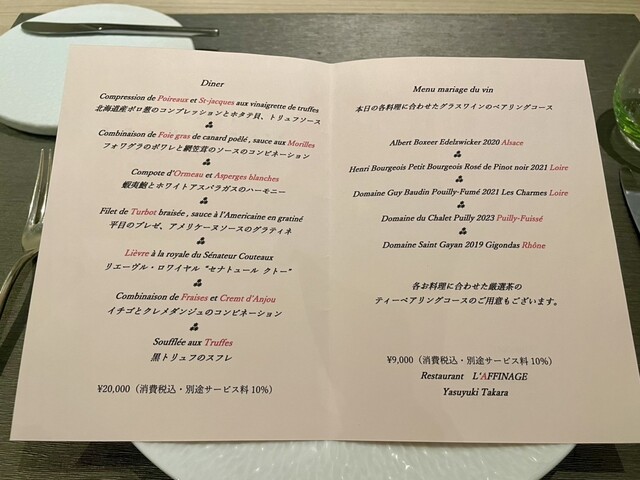 Diner
Compression de Poireaux et St-jacques aux vinaigrette de truffes
北海道産ポロ葱のコンプレッションとホタテ貝、トリュフソース
Combinaison de Foie gras de canard poêlé , sauce aux Morilles
フォワグラのポワレと網笠茸のソースのコンビネーション
Compote d'Ormeau et Asperges blanches
蝦夷鮑とホワイトアスパラガスのハーモニー
Filet de Turbot braisée , sauce à l'Americaine en gratiné
平目のブレゼ、アメリケーヌソースのグラティネ
Lièvre à la royale du Sénateur Couteaux
リエーヴル・ロワイヤル “セナトュール クトー”
Combinaison de Fraises et Cremt d'Anjou
イチゴとクレメダンジュのコンビネーション
Soufflée aux Truffes
黒トリュフのスフレ
¥20,000（消費税込・別途サービス料 10%）
Menu mariage du vin
本日の各料理に合わせたグラスワインのペアリングコース
Albert Boxeer Edelzwicker 2020 Alsace
Henri Bourgeois Petit Bourgeois Rosé de Pinot noir 2021 Loire
Domaine Guy Baudin Pouilly-Fumé 2021 Les Charmes Loire
Domaine du Chalet Puilly 2023 Puilly-Fuissé
Domaine Saint Gayan 2019 Gigondas Rhône
各お料理に合わせた厳選茶の
ティーペアリングコースのご用意もございます。
¥9,000（消費税込・別途サービス料 10%）
Restaurant L'AFFINAGE
Yasuyuki Takara